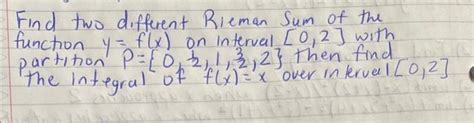 Find two different Rieman Sum of the
function y = f(x) on interval [0,2] with
partition P={0, ½, 1, 3/2, 2} then find
the integral of f(x)=x over interval [0,2]